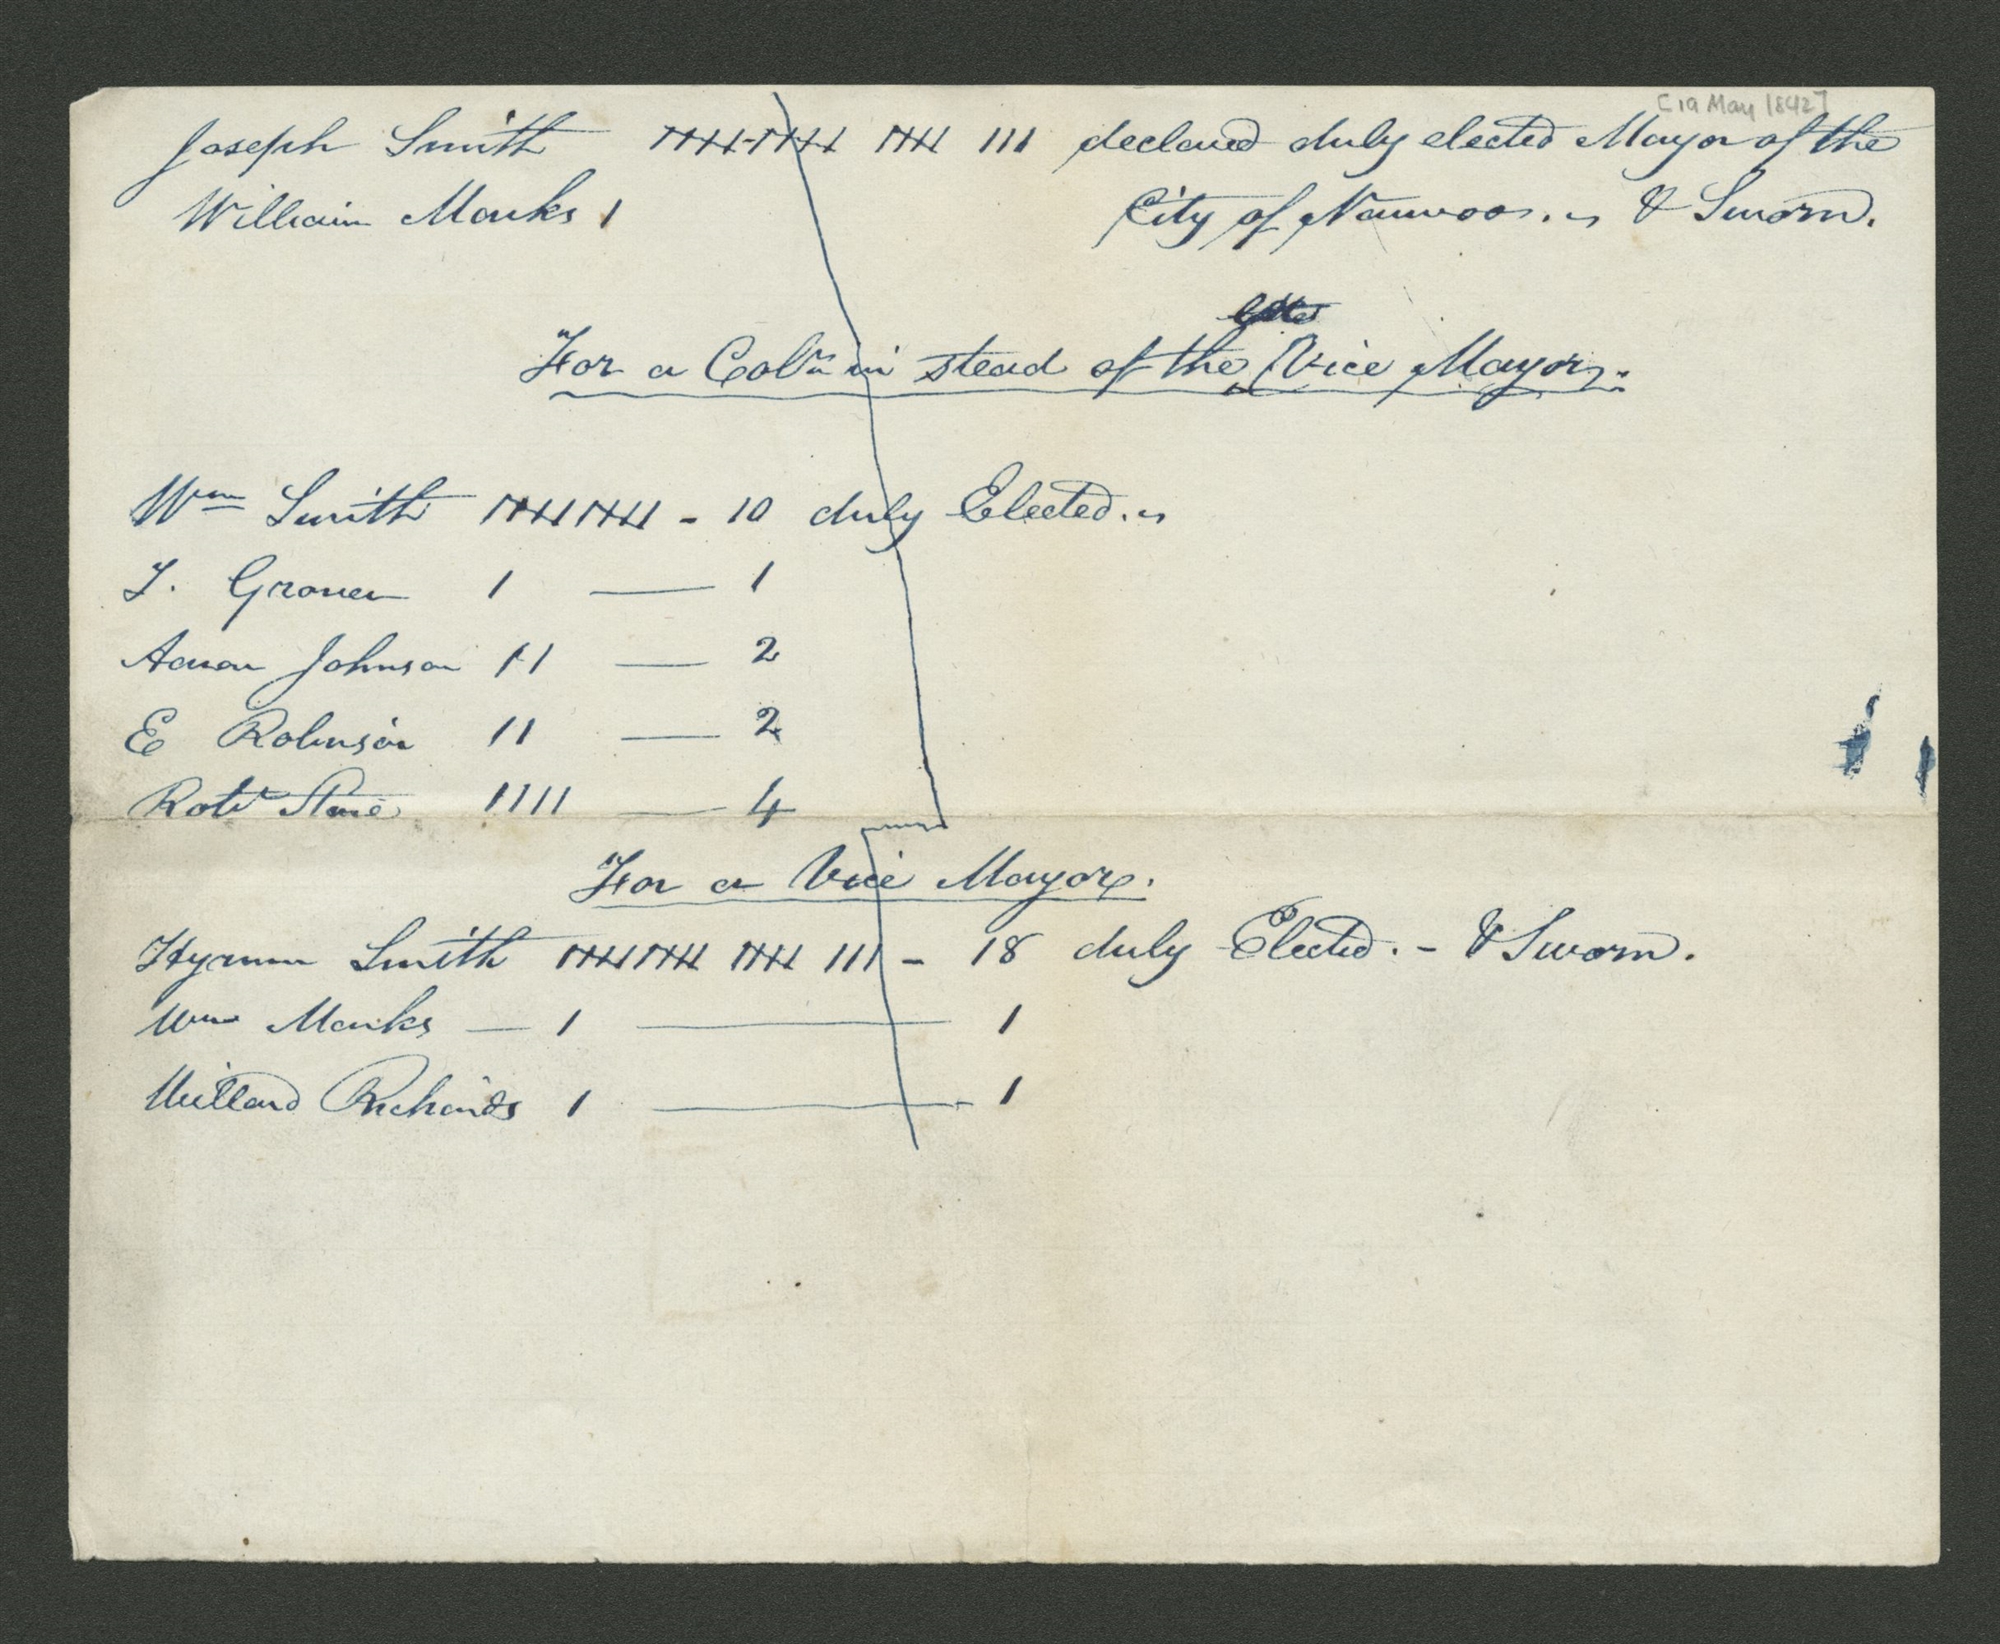 [19 May 1842]
Joseph Smith 𝍸𝍸 𝍸 III declared duly elected Mayor of the
William Marks 1 City of Nauwoo. & Sworn.
For a Colr in stead of the Vice Mayor.
Wm Smith 𝍸𝍸 - 10 duly Elected.
T. Grover 1 — 1
Aaron Johnson 11 — 2
E Robinson 11 — 2
Robt Stone 1111 — 4
For a Vice Mayor.
Hyrum Smith 𝍸𝍸 𝍸 III - 18 duly Elected. - & Sworn.
Wm Marks — 1 — 1
Willard Richards 1 — 1